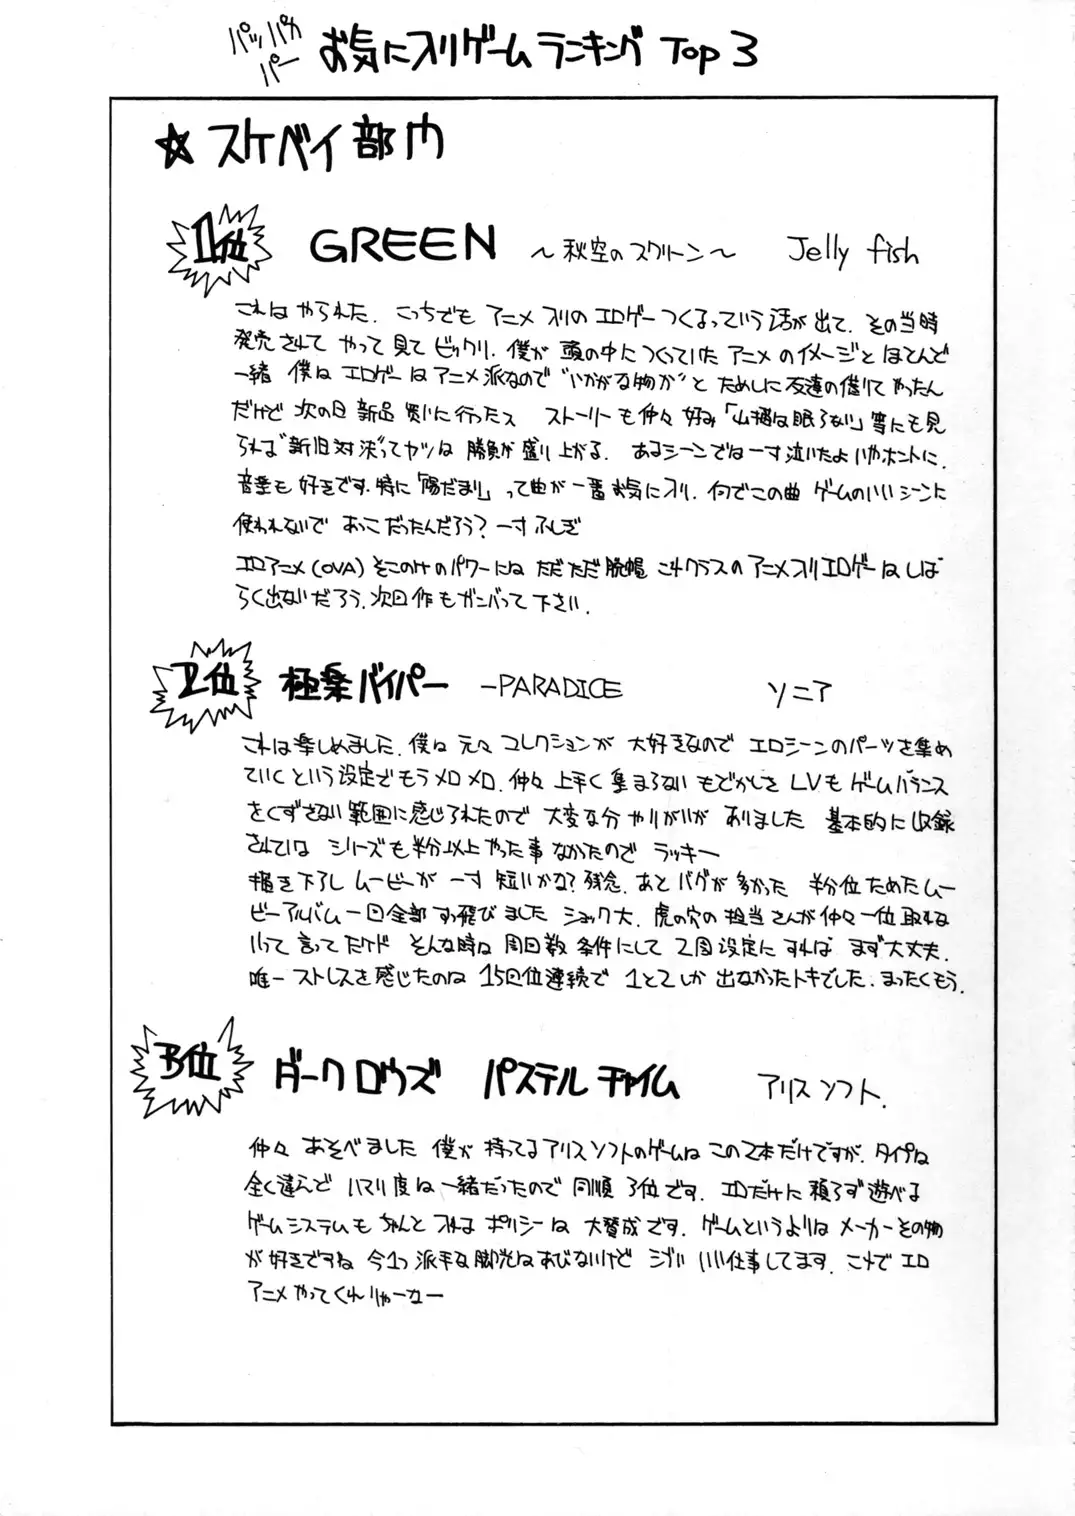 パッパカパー お気に入りゲームランキング Top 3
☆スケベイ部門
1位 GREEN ～秋空のスクリーン～ Jelly fish
これはやられた. こっちでも アニメ入りの エロゲーつくるっていう話が出て. その当時
発売されて やって見て ビックリ. 僕が 頭の中につくっていた アニメのイメージと ほとんど
一緒 僕は エロゲーは アニメ派なので "いかがる物か" と ためしに友達の借りて やったん
だけど 次の日 新品 買いに行ったス ストーリーも仲々 好み「山猫は眠らない」等にも見
られる"新旧対決"ってヤツは 勝負が盛り上がる. あるシーンでは一寸泣いたよいやホントに.
音楽も 好きです. 特に「陽だまり」って曲が一番お気に入り. 何でこの曲 ゲームのいいシーンに
使われないで おっこだったんだろう? 一寸ふしぎ
エロアニメ(OVA) そこのけのパワーには ただただ脱帽 これクラスのアニメ入りエロゲーはしば
らく出ないだろう. 次回作もガンバって下さい.
2位 極楽バイパー －PARADICE ソニア
これは楽しめました. 僕は 元々 コレクションが 大好きなので エロシーンのパーツを集め
ていくという設定でもうメロメロ. 仲々 上手く 集まらない もどかしさ LVも ゲームバランス
をくずさない範囲に感じられたので 大変な分 やりがいが ありました 基本的に収録
されている シリーズも半分以上やった事なかったので ラッキー
描き下ろし ムービーが 一寸 短いかな? 残念. あと バグが多かった 半分位ためたムー
ビーアルバム一回全部すっ飛びました ショック大. 虎の穴の担当さんが仲々一位取れな
いって言ってたけど そんな時は 周回数 条件にして 2周設定に すれば まず大丈夫.
唯一ストレスを感じたのは 15回位連続で 1と2しか 出なかったトキでした. まったくもう.
3位 ダークロウズ パステルチャイム アリスソフト.
仲々 あそべました 僕が 持ってるアリスソフトのゲームは この2本だけですが. タイプは
全く違えど ハマリ度は一緒だったので同順 3位です. エロだけに頼らず遊べる
ゲームシステムも ちゃんと 入れる ポリシーは 大賛成です. ゲームというよりは メーカーその物
が好きですね 今1つ派手な脚光はあびないけど シブい いい仕事してます. これで エロ
アニメやってくれりゃーなー